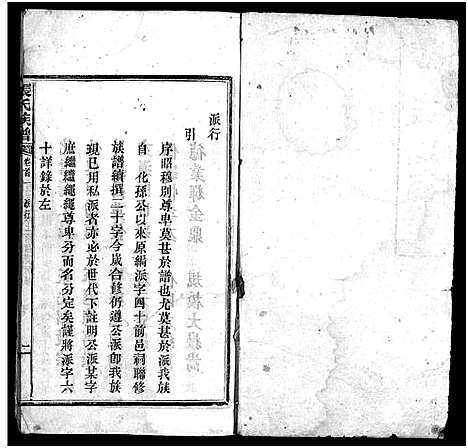 派行
引
序昭穆別尊卑莫甚於譜也尤莫甚於派我族
自 化孫公以來原編派字四十前邑祠聯修
族譜續撰二十字今歲合修仍遵公派卽我族
現已用私派者亦必於世代下註明公派某字
庶繼繼繩繩尊卑分而名分定矣謹將派字六
十詳錄於左
張氏族譜 卷首 派行 一